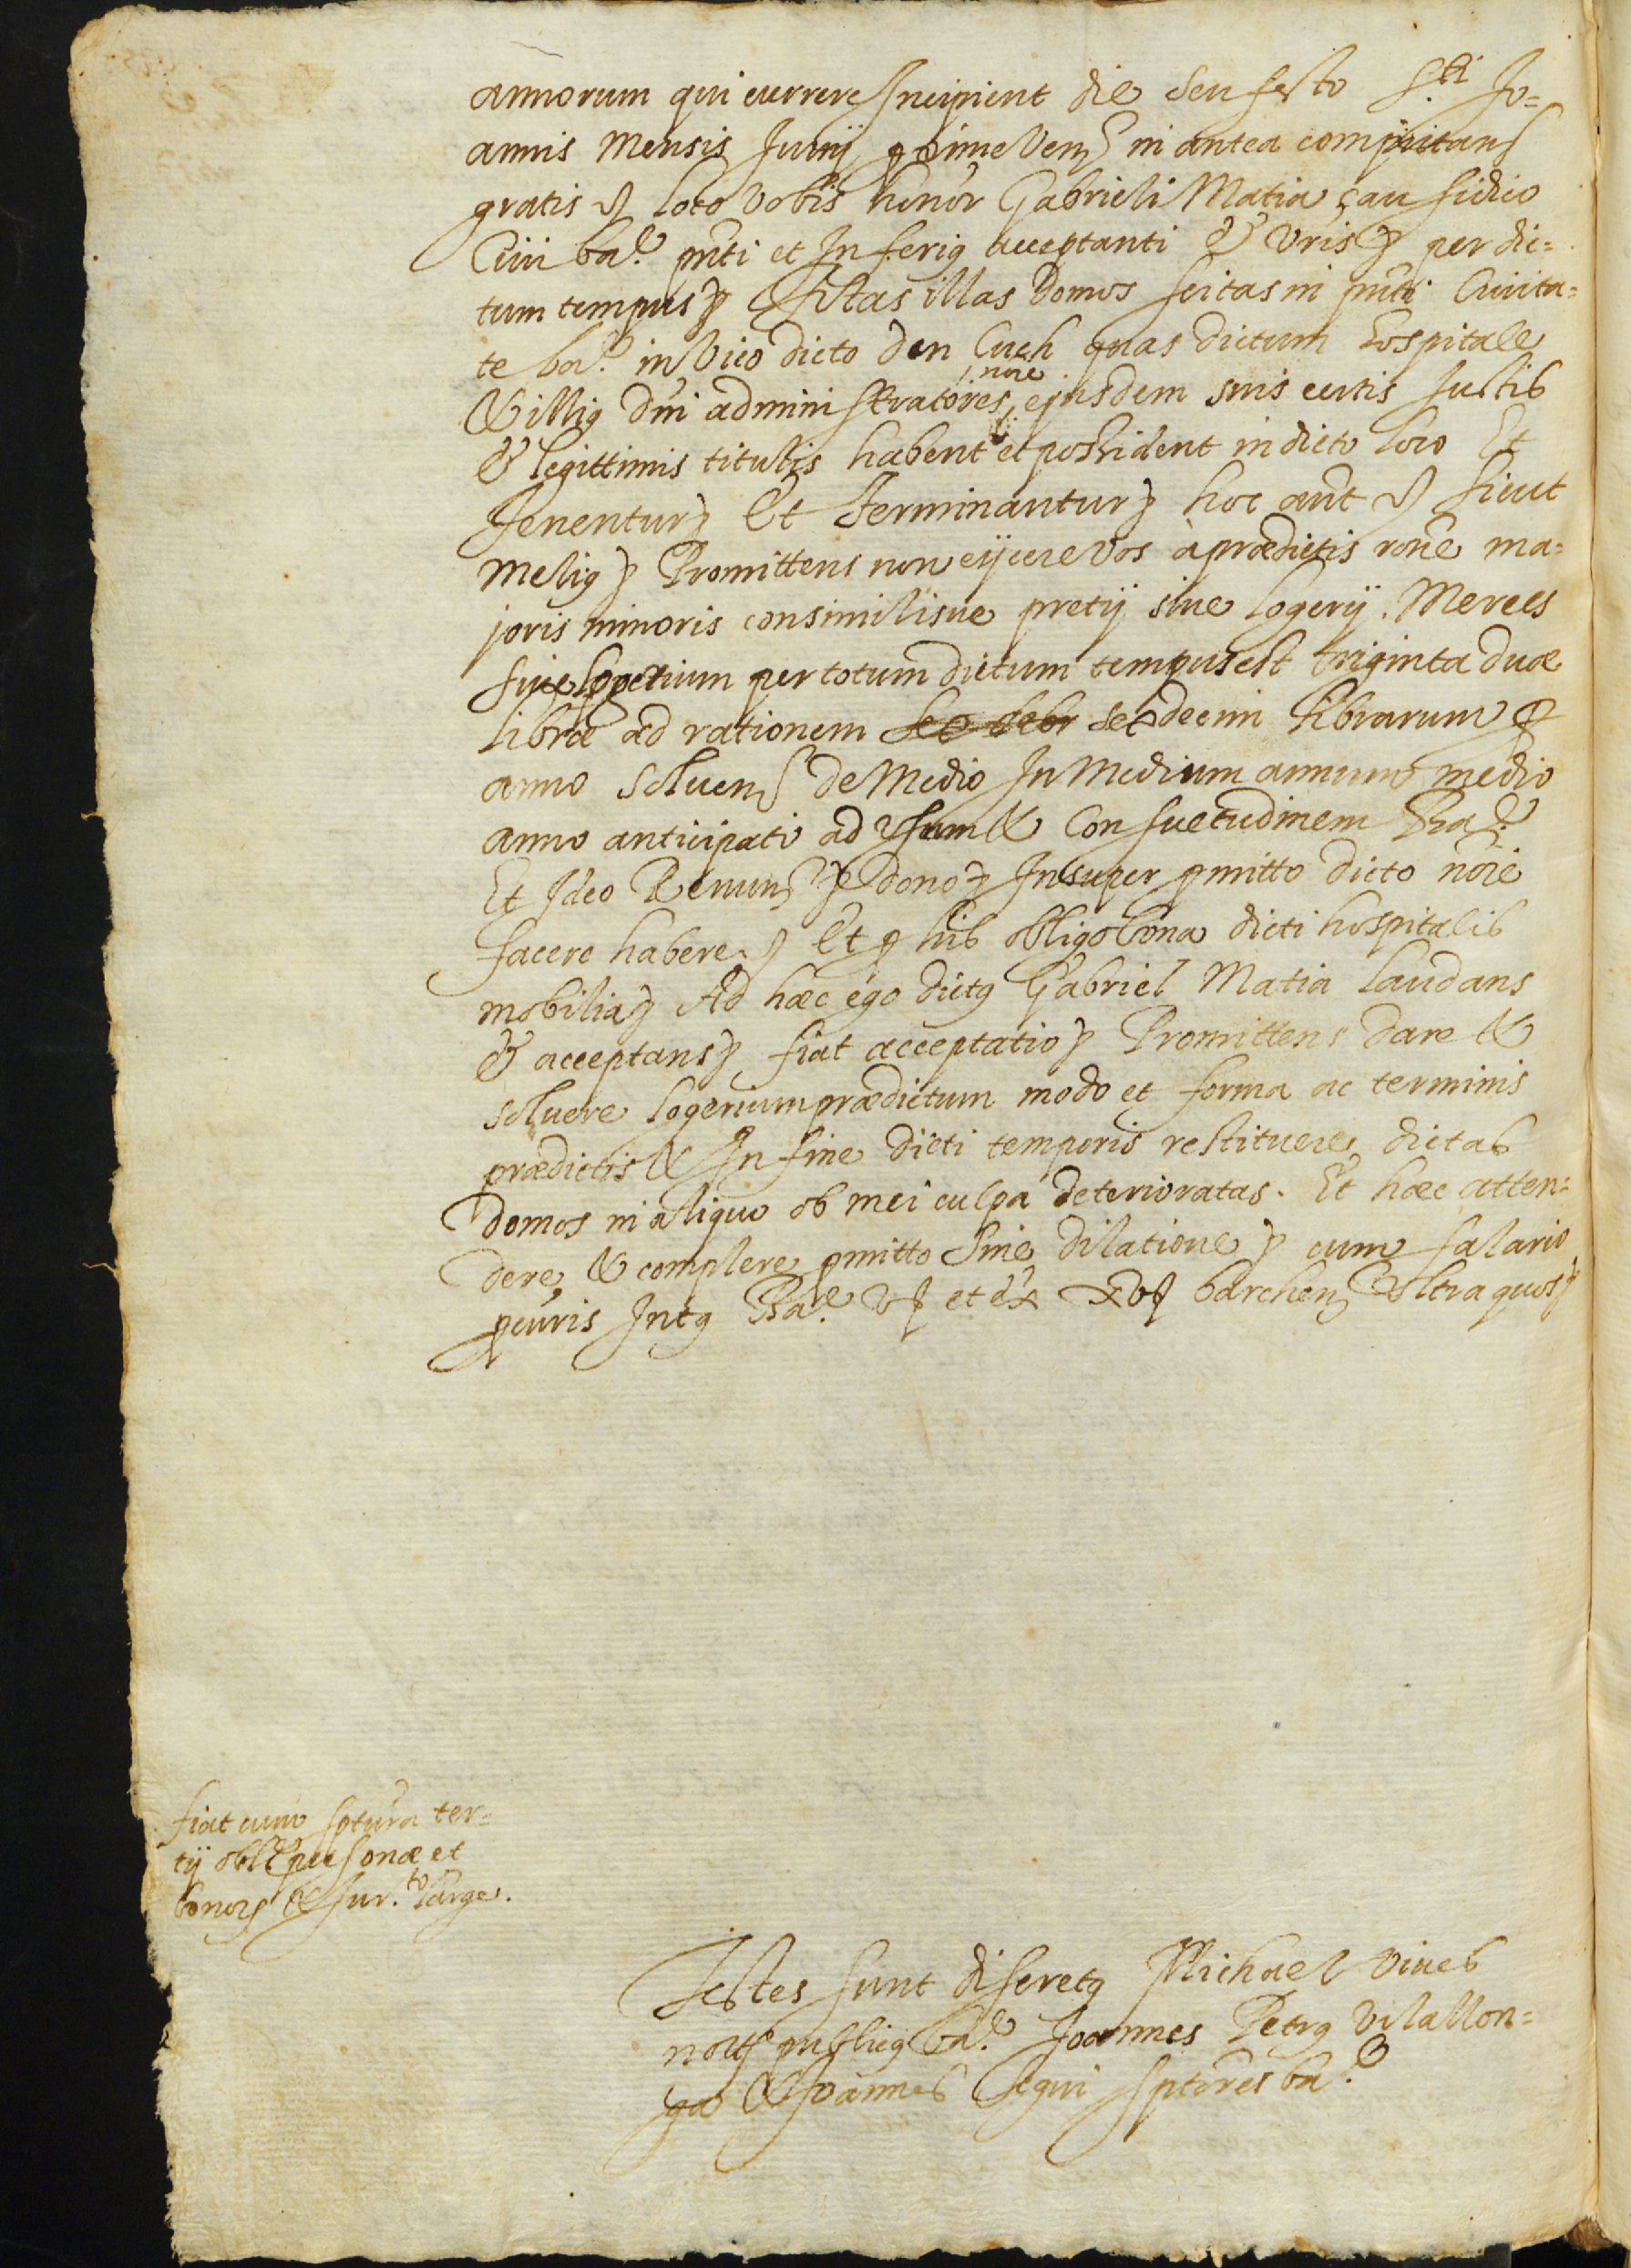 annorum qui currere Incipient die seu festo S.ti Jo=
annis Mensis Junij ꝓxime Venẽ in antea computanẽ
gratis &c loco vobis honor Gabrieli Matia çau sidio
Ciui ba.e pñti et Inferiꝰ acceptanti & vris &c per dic=
tum tempus &c illas Domos scitas in pñti Ciuita=
te ba.e in Vico dicto den Cuch quas dictum hospitale
& illiꝰ dñi administratores noie ejusdem suis certis Justis
& legittimis titulis habent et possident in dicto loco Et
Tenentur &c Et Terminantur &c hoc aut &c sicut
Meliꝰ &c Promittens non eijcere vos à prædictis rone ma=
joris minoris consimilisue pretij siue logerij. Merces
siue logerium per totum dictum tempus est triginta duæ
libræ ad rationem sexdecim librarum ꝓ
anno soluenẽ de Medio In Medium annum medio
anno anticipato ad vsum & Consuetudinem Ba.e
Et Ideo Renunẽ &c dono &c Insuper ꝓmitto dicto noie
facere habere &c Et ꝓ his obligo bona dicti hospitalis
mobilia &c Ad hæc ego dictꝰ Gabriel Matia laudans
& acceptans &c fiat acceptatio &c Promittens dare &
soluere logerium prædictum modo et forma ac terminis
prædictis & In fine dicti temporis restituere dictas
domos in aliquo ob mei culpa deterioratas. Et hæc atten=
dere & complere ꝓmitto sine dilatione &c cum salario
ꝓcuris Intꝰ Ba.e vj et ex xvj barchenẽ vltra quos &c
fiat cum sptura ter=
tij obl.e personæ et
bonorꝫ & Jur.to large.
Testes sunt discretꝰ Michael Viues
notꝰ publicꝰ Ba.e Joannes Petrꝰ Vilallon=
ga & Joannes Segui sptores ba.e